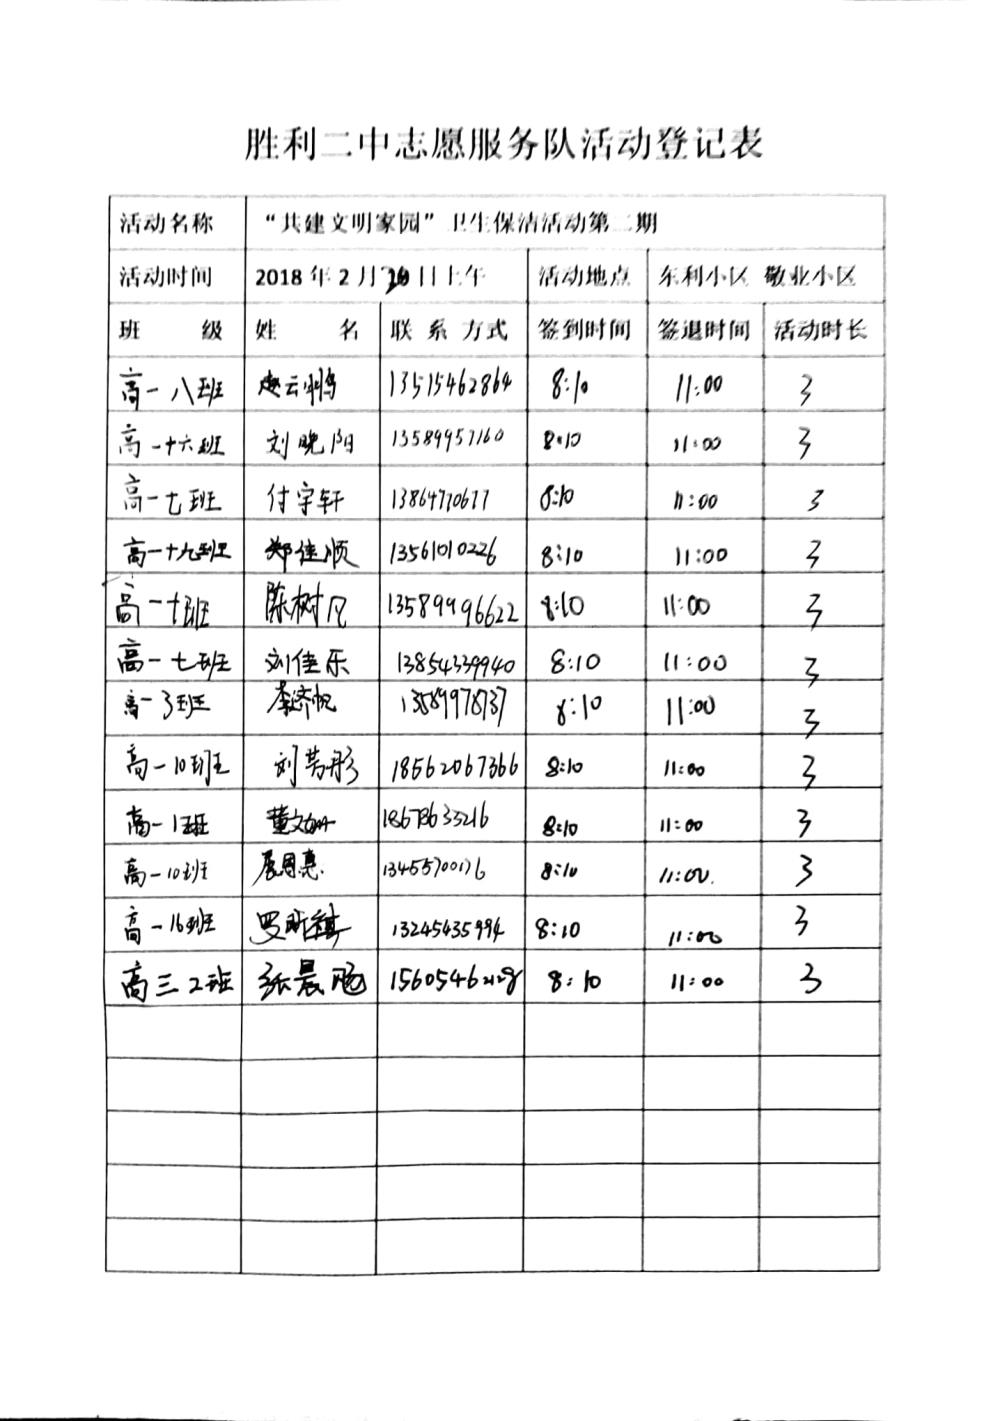 胜利二中志愿服务队活动登记表
活动名称 “共建文明家园”卫生保洁活动第二期
活动时间 2018年2月 日上午 活动地点 东利小区 敬业小区
班 级 姓 名 联系方式 签到时间 签退时间 活动时长
高一八班 赵云鹤 13515462864 8:10 11:00 3
高一十六班 刘晓阳 13589957160 8:10 11:00 3
高一七班 付宇轩 13864770677 8:10 11:00 3
高一十九班 郑佳顺 13561010226 8:10 11:00 3
高一十班 陈树凡 13589996622 8:10 11:00 3
高一七班 刘佳乐 13854339940 8:10 11:00 3
高一3班 李济帆 13589978737 8:10 11:00 3
高一10班 刘芳彤 18562067366 8:10 11:00 3
高一1班 董文 8:10 11:00 3
高一10班 13455700176 8:10 11:00 3
高一16班 罗 祺 13245435994 8:10 11:00 3
高三2班 张晨 8:10 11:00 3